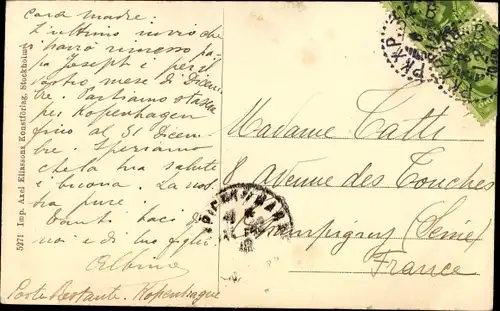 Cara madre:
L'ultimo invio che
si potrà rimesso pa-
pa Joseph è per il
vostro mese di Dicem-
bre. Partiamo stase-
per Kopenhagen
fino al 31 Dicem-
bre. Speriamo
che la tua salute
è buona. La nos-
tra pure.
Tanti baci di
noi e di tuo figlio
Albino
Poste Restante. Kopenhague
5271 Imp. Axel Eliassons Konstförlag, Stockholm
PKXP
Madame Catti
8 Avenue des Touches
Champigny (Seine)
France